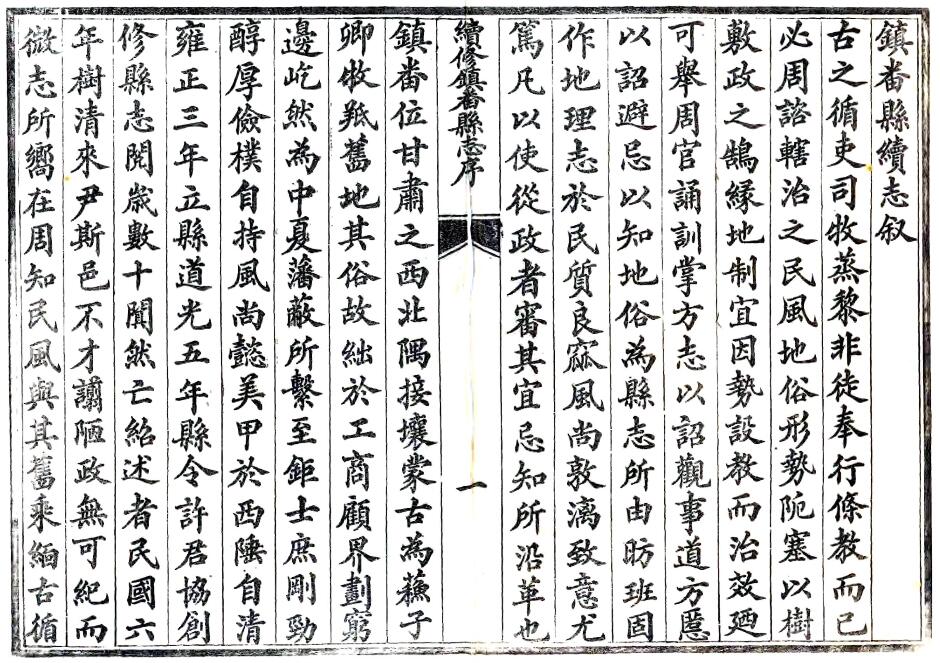 鎮番縣續志叙
古之循吏司牧蒸黎非徒奉行條教而已
必周諮轄治之民風地俗形勢阨塞以樹
敷政之鵠緣地制宜因勢設教而治效廼
可舉周官誦訓掌方志以詔觀事道方慝
以詔避忌以知地俗為縣志所由昉班固
作地理志於民質良窳風尚敦漓致意尤
篤凡以使從政者審其宜忌知所沿革也
續修鎮番縣志序
一
鎮番位甘肅之西北隅接壤蒙古為蘇子
卿牧羝舊地其俗故絀於工商顧界劃窮
邊屹然為中夏藩蔽所繫至鉅士庶剛勁
醇厚儉樸自持風尚懿美甲於西陲自清
雍正三年立縣道光五年縣令許君協創
修縣志閱歲數十闃然亡紹述者民國六
年樹清來尹斯邑不才謭陋政無可紀而
微志所嚮在周知民風與其舊乘緬古循